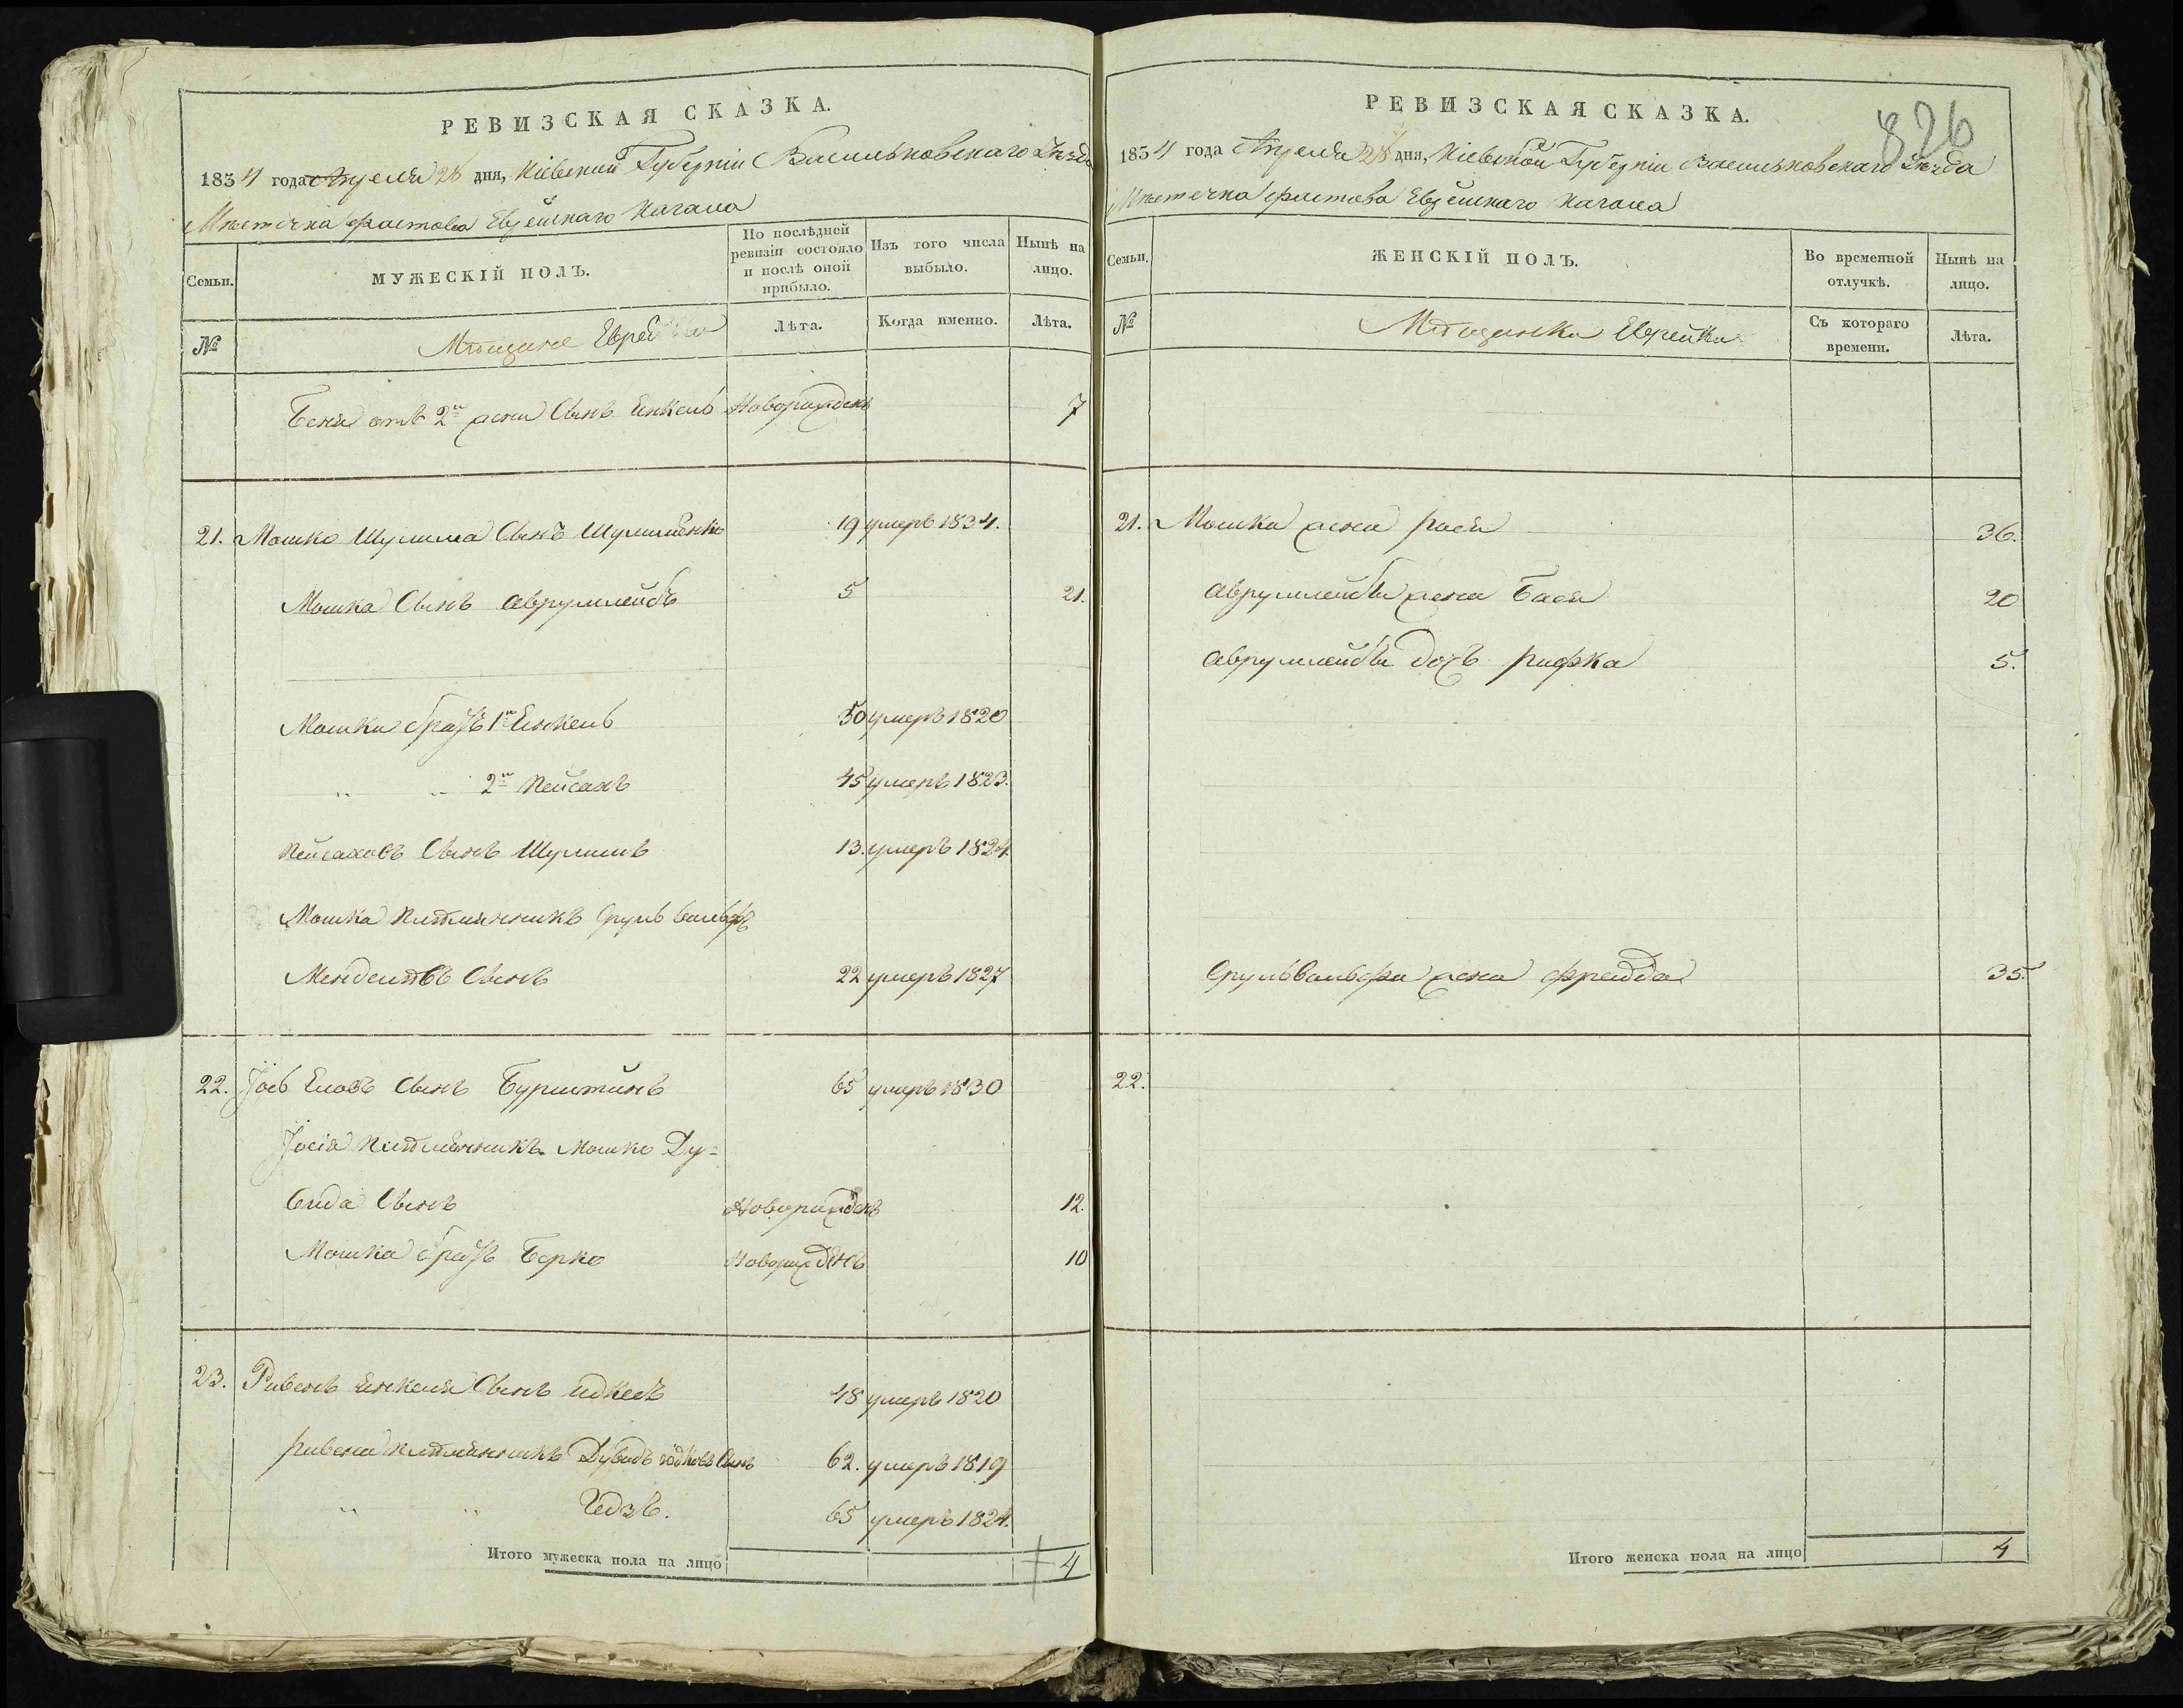 РЕВИЗСКАЯ СКАЗКА.
1834 года Апреля 28 дня, Кіевской Губерніи Васильковскаго Уезда
Местечка Фастова Еврейскаго Кагала
Семьи.
МУЖЕСКІЙ ПОЛЪ.
По послѣдней ревизіи состояло и послѣ оной прибыло.
Изъ того числа выбыло.
Нынѣ на лицо.
№
Мѣщане Евреи
Лѣта.
Когда именно.
Лѣта.
Беня отъ 2й жены Сынъ Енкель Новорожденъ 7
21. Мошко Шулима Сынъ 19 умеръ 1834.
Мошка Сынъ Аврумлейбъ 5 21.
Мошки братъ 1й Енкель 50 умеръ 1820
" " 2й Пейсахъ 45 умеръ 1823.
Пейсаховъ Сынъ Шулимъ 13. умеръ 1824.
Мошка племянникъ Сруль Вольфъ
Менделѣвъ Сынъ 22 умеръ 1827
22. Іось Сынъ Бурштинъ 65 умеръ 1830
Іосія племянникъ Мошко Ду=
вида Сынъ Новорожденъ 12.
Мошка братъ Берко Новорожденъ 10
23. Рувенъ Енкеля Сынъ 48 умеръ 1820
Рувена племянникъ Дувидъ Сынъ 62. умеръ 1819
" " 65 умеръ 1824.
Итого мужеска пола на лицо 4
РЕВИЗСКАЯ СКАЗКА.
826
1834 года Апреля 28 дня, Кіевской Губерніи Васильковскаго Уезда
Местечка Фастова Еврейскаго Кагала
Семьи.
ЖЕНСКІЙ ПОЛЪ.
Во временной отлучкѣ.
Нынѣ на лицо.
№
Мѣщанки Еврейки
Съ котораго времени.
Лѣта.
21. Мошка жена Рася 36.
Аврумлейбы жена Бася 20
Аврумлейбы дочь Рифка 5.
Срульвольфа жена Фрейда 35.
22.
Итого женска пола на лицо 4